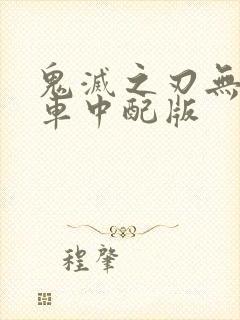 鬼滅之刃無
車中配版
程肇